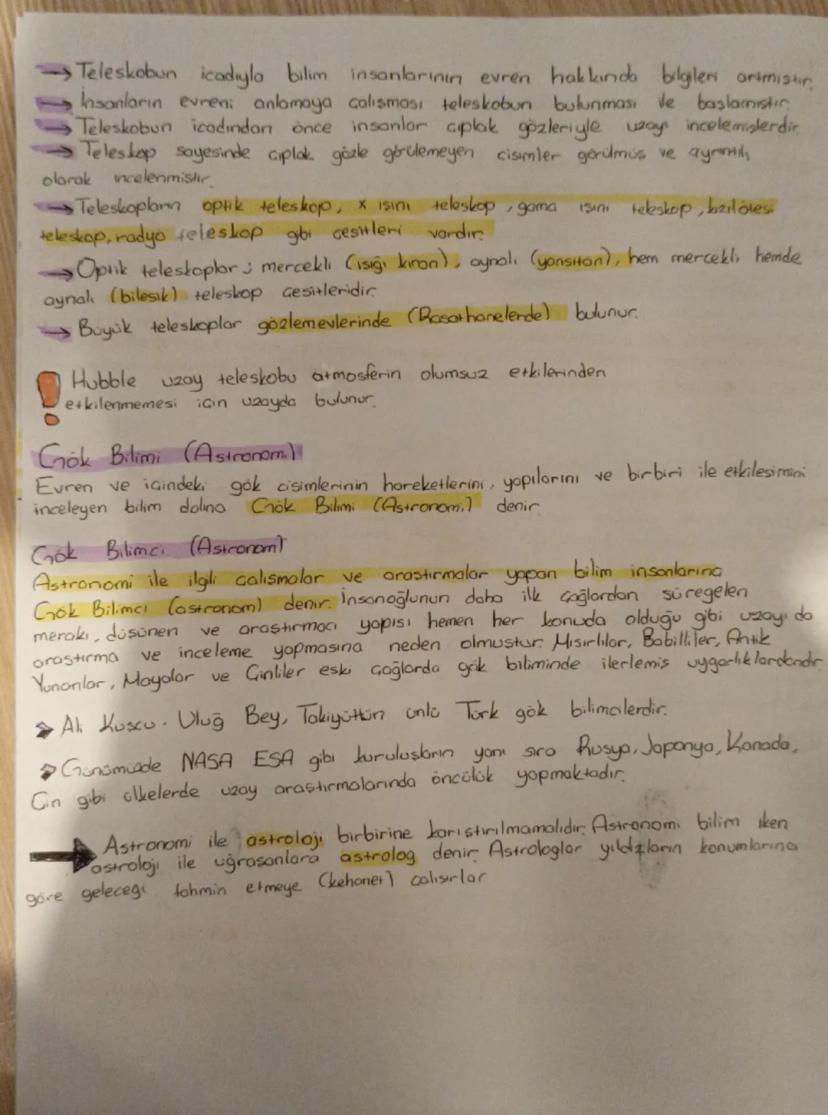 → Teleskobun icadıyla bilim insanlarının evren hakkında bilgileri artmıştır.
→ İnsanların evreni anlamaya çalışması teleskobun bulunması ile başlamıştır.
→ Teleskobun icadından önce insanlar çıplak gözleriyle uzayı incelemişlerdir
→ Teleskop sayesinde çıplak gözle görülemeyen cisimler görülmüş ve ayrıntılı
olarak incelenmiştir.
→ Teleskopların optik teleskop, x ışını teleskop, gama ışını teleskop, kızılötesi
teleskop, radyo teleskop gibi çeşitleri vardır.
→ Optik teleskoplar; mercekli (ışığı kıran), aynalı (yansıtan), hem mercekli hemde
aynalı (bileşik) teleskop çeşitleridir.
→ Büyük teleskoplar gözlemevlerinde (Rasathanelerde) bulunur.
! Hubble uzay teleskobu atmosferin olumsuz etkilerinden
etkilenmemesi için uzayda bulunur.
Gök Bilimi (Astronomi)
Evren ve içindeki gök cisimlerinin hareketlerini, yapılarını ve birbiri ile etkileşimini
inceleyen bilim dalına Gök Bilimi (Astronomi) denir.
Gök Bilimci (Astronom)
Astronomi ile ilgili çalışmalar ve araştırmalar yapan bilim insanlarına
Gök Bilimci (astronom) denir. İnsanoğlunun daha ilk çağlardan süregelen
merakı, düşünen ve araştırmacı yapısı hemen her konuda olduğu gibi uzayı da
araştırma ve inceleme yapmasına neden olmuştur. Mısırlılar, Babilliler, Antik
Yunanlar, Mayalar ve Çinliler eski çağlarda gök biliminde ilerlemiş uygarlıklardandır.
Ali Kuşçu, Uluğ Bey, Takiyüttün ünlü Türk gök bilimcilerdir.
Günümüzde NASA ESA gibi kuruluşların yanı sıra Rusya, Japonya, Kanada,
Çin gibi ülkelerde uzay araştırmalarında öncülük yapmaktadır.
→ Astronomi ile astroloji birbirine karıştırılmamalıdır. Astronomi bilim iken
astroloji ile uğraşanlara astrolog denir. Astrologlar yıldızların konumlarına
göre geleceği tahmin etmeye (kehanet) çalışırlar